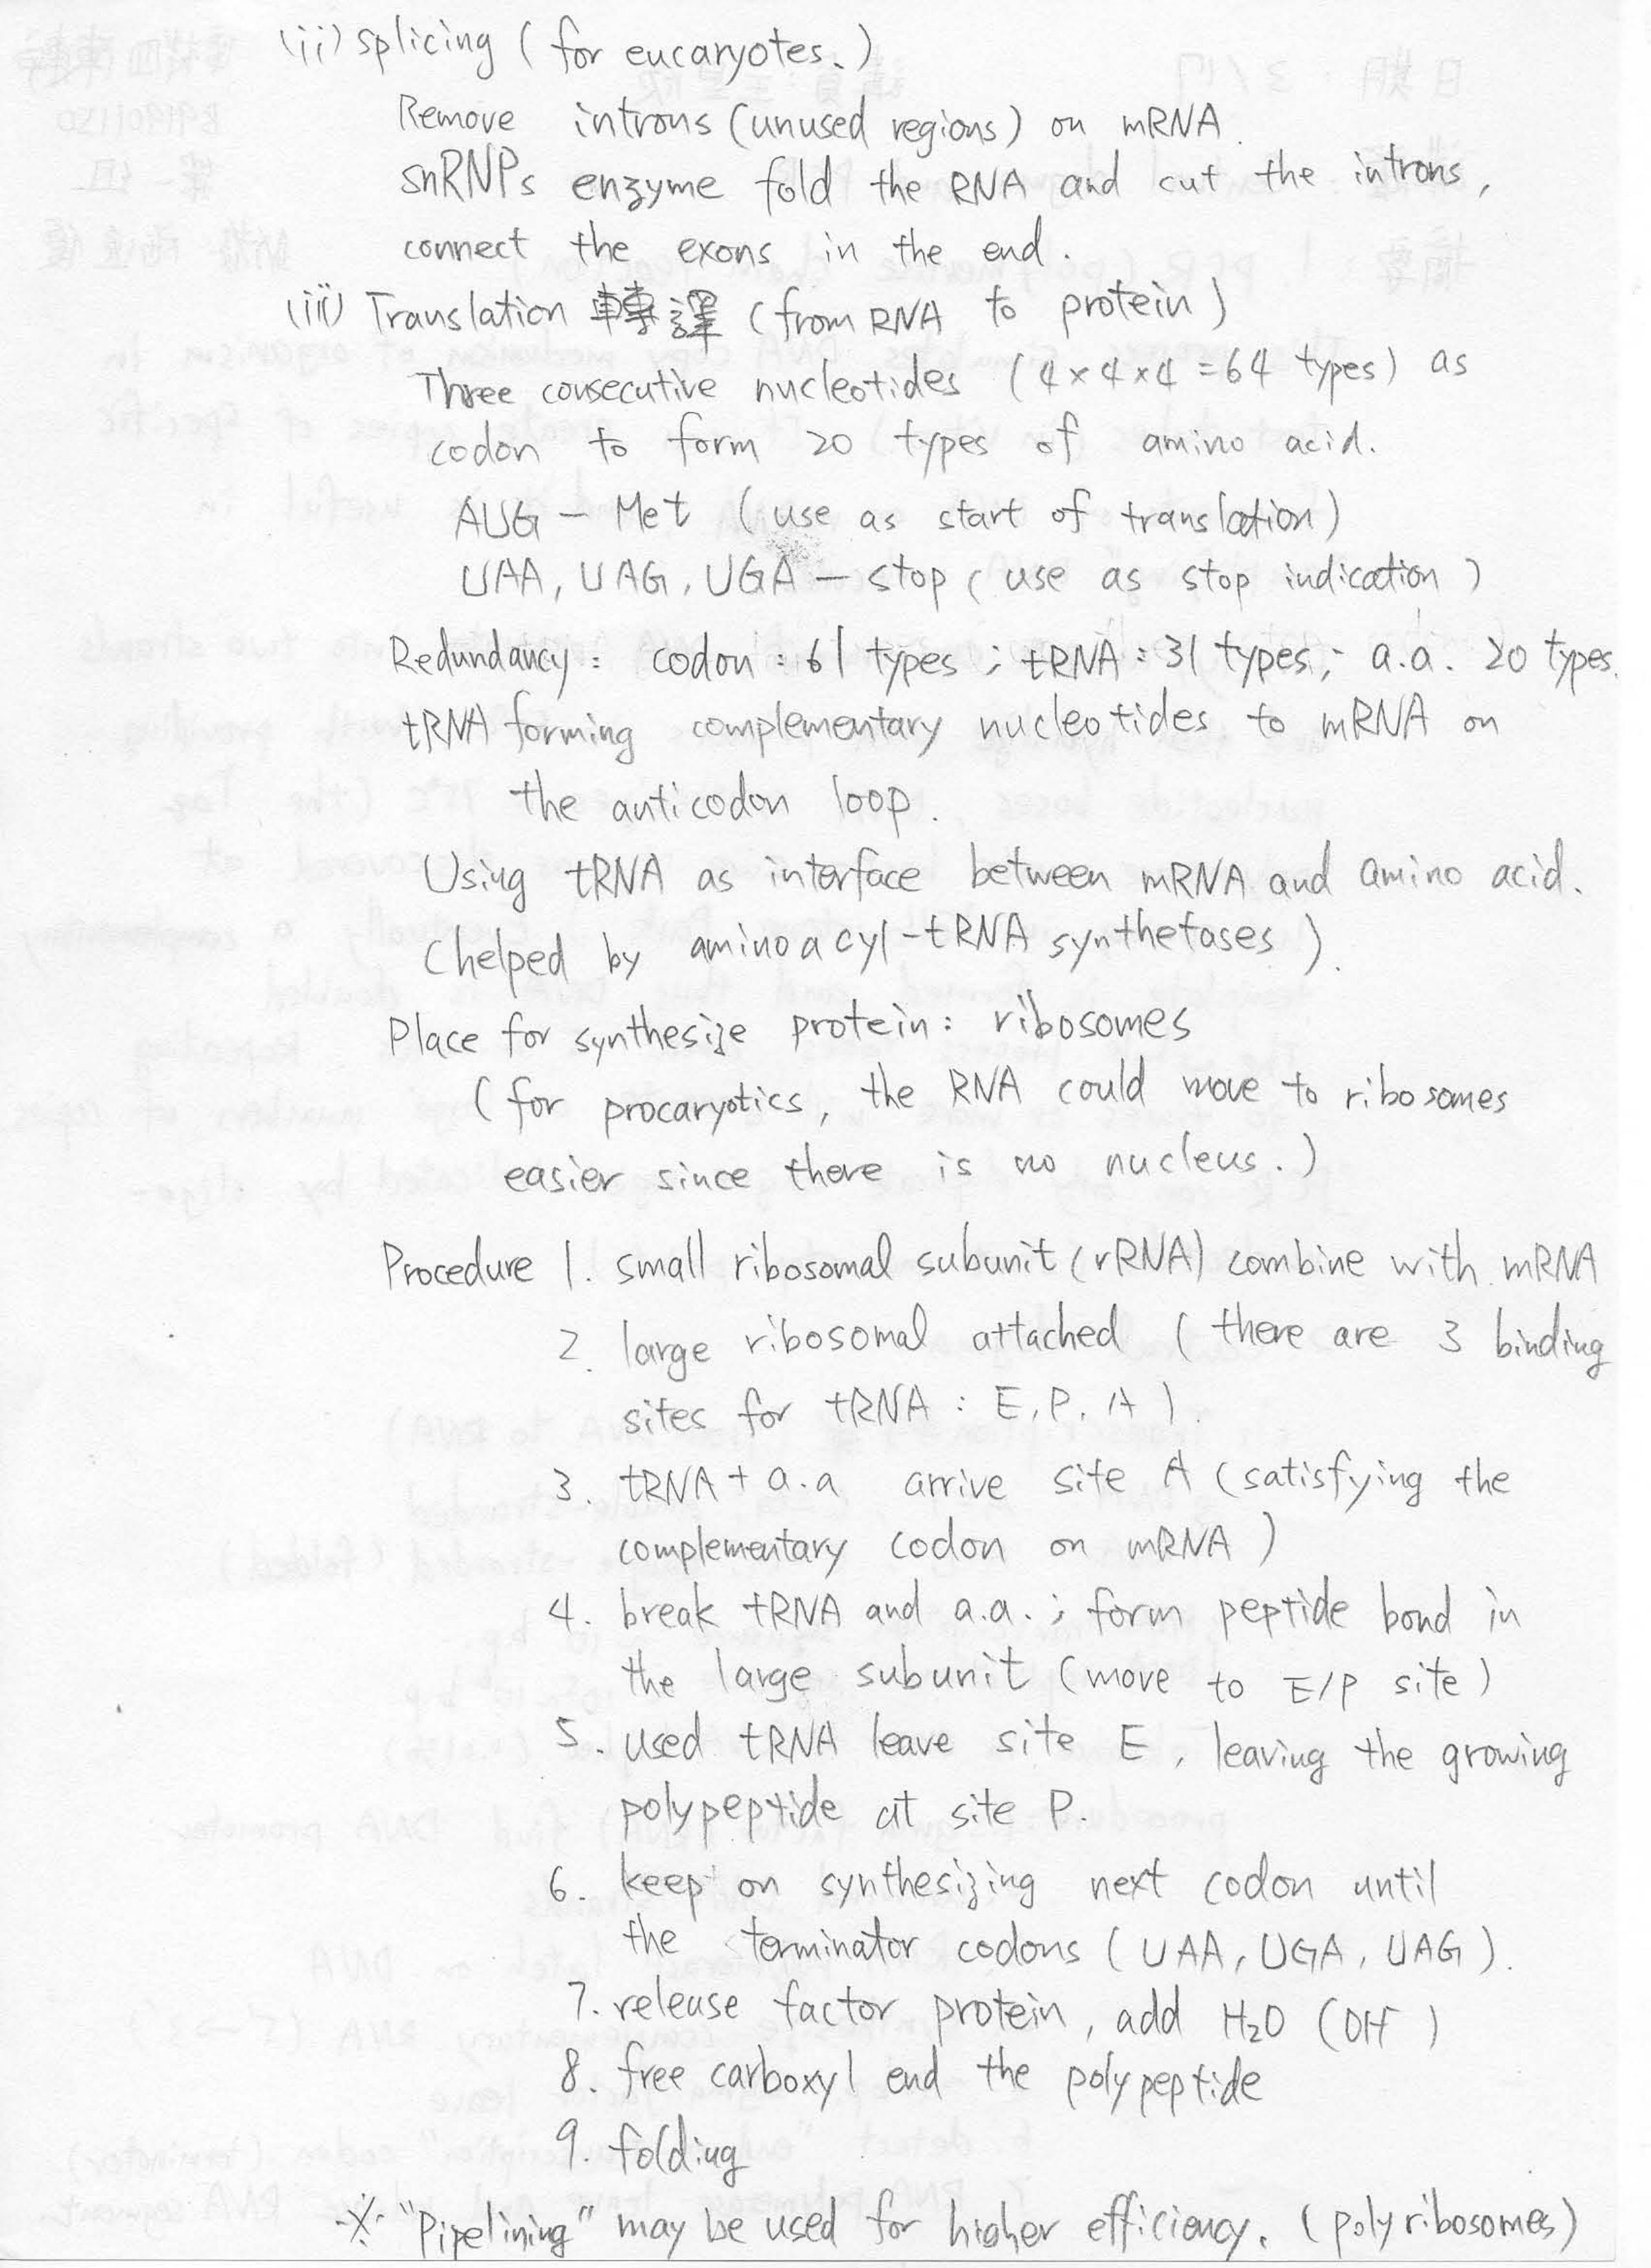 (ii) splicing (for eucaryotes.)
Remove introns (unused regions) on mRNA.
snRNPs enzyme fold the RNA and cut the introns,
connect the exons in the end.
(iii) Translation 轉譯 (from RNA to protein)
Three consecutive nucleotides (4×4×4=64 types) as
codon to form 20 types of amino acid.
AUG — Met (use as start of translation)
UAA, UAG, UGA — stop (use as stop indication)
Redundancy: codon: 61 types; tRNA: 31 types; a.a. 20 types.
tRNA forming complementary nucleotides to mRNA on
the anticodon loop.
Using tRNA as interface between mRNA and amino acid.
(helped by aminoacyl-tRNA synthetases).
Place for synthesize protein: ribosomes
(for procaryotics, the RNA could move to ribosomes
easier since there is no nucleus.)
Procedure 1. small ribosomal subunit (rRNA) combine with mRNA
2. large ribosomal attached (there are 3 binding
sites for tRNA: E, P, A).
3. tRNA + a.a arrive site A (satisfying the
complementary codon on mRNA)
4. break tRNA and a.a.; form peptide bond in
the large subunit (move to E/P site)
5. used tRNA leave site E, leaving the growing
polypeptide at site P.
6. keep on synthesizing next codon until
the terminator codons (UAA, UGA, UAG).
7. release factor protein, add H₂O (OH⁻)
8. free carboxyl end the polypeptide
9. folding
※ "Pipelining" may be used for higher efficiency. (polyribosomes)